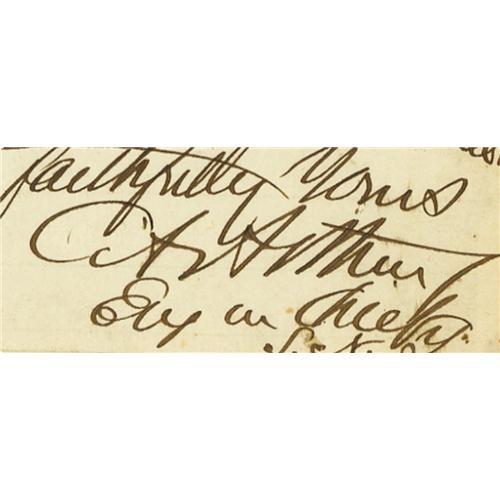 faithfully Yours
C A Arthur
Eng in Chief